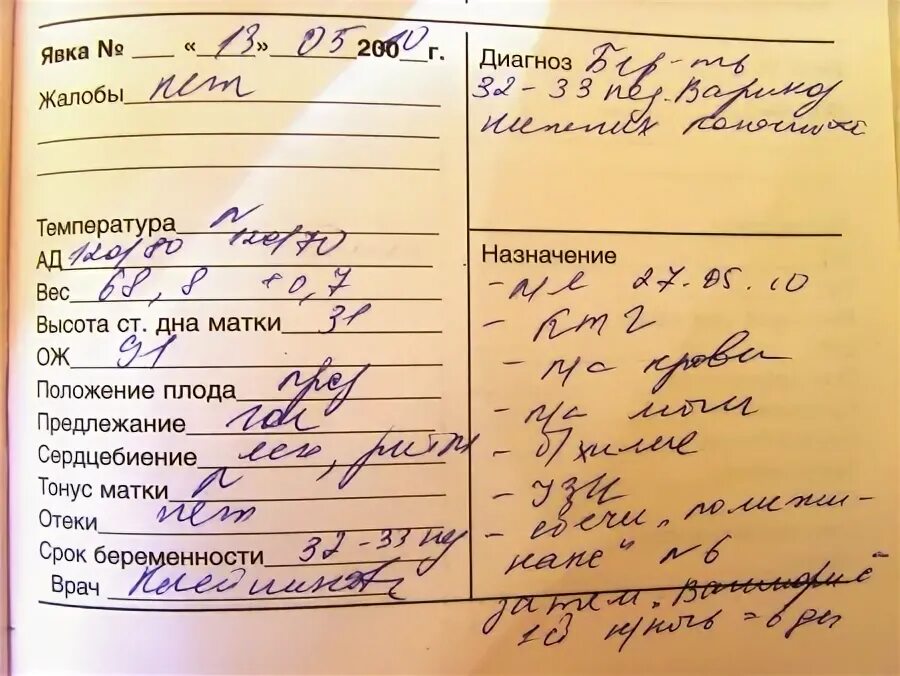 Явка № «13» 05 20010 г.
Жалобы нет
Температура N
АД 120/80 120/70
Вес 68,8 +0,7
Высота ст. дна матки 31
ОЖ 91
Положение плода прод
Предлежание гол
Сердцебиение ясн, ритм
Тонус матки N
Отеки нет
Срок беременности 32-33 нед
Врач
Диагноз Бер-ть
32-33 нед. Варикоз
нижних конечностей
Назначение
- 27.05.10
- КТГ
- о/а крови
- о/а мочи
- б/химие
- УЗИ
- свечи „полижи-
накс" N6
затем
1св н/ночь = 6 дн